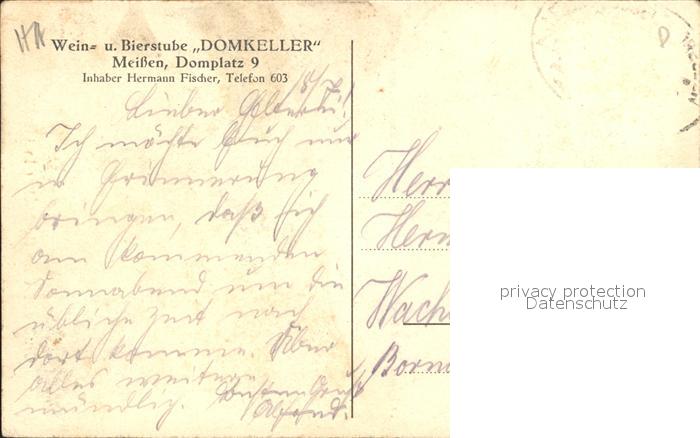 Wein- u. Bierstube „DOMKELLER“
Meißen, Domplatz 9
Inhaber Hermann Fischer, Telefon 603
Ich möchte Euch nur
in Erinnerung
bringen, daß ich
am kommenden
Sonnabend um die
übliche Zeit nach
dort komme. Über
alles weitere
mündlich.
Herr
Herm
Wach
Borna
privacy protection
Datenschutz